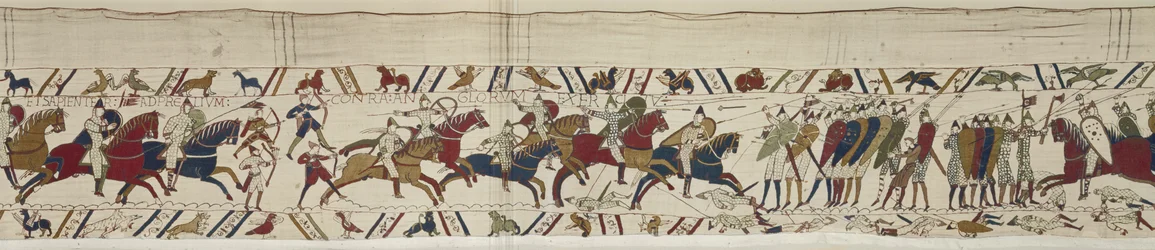 ET SAPIENTER: AD PRELIVM:
CONTRA: ANGLORVM EXER